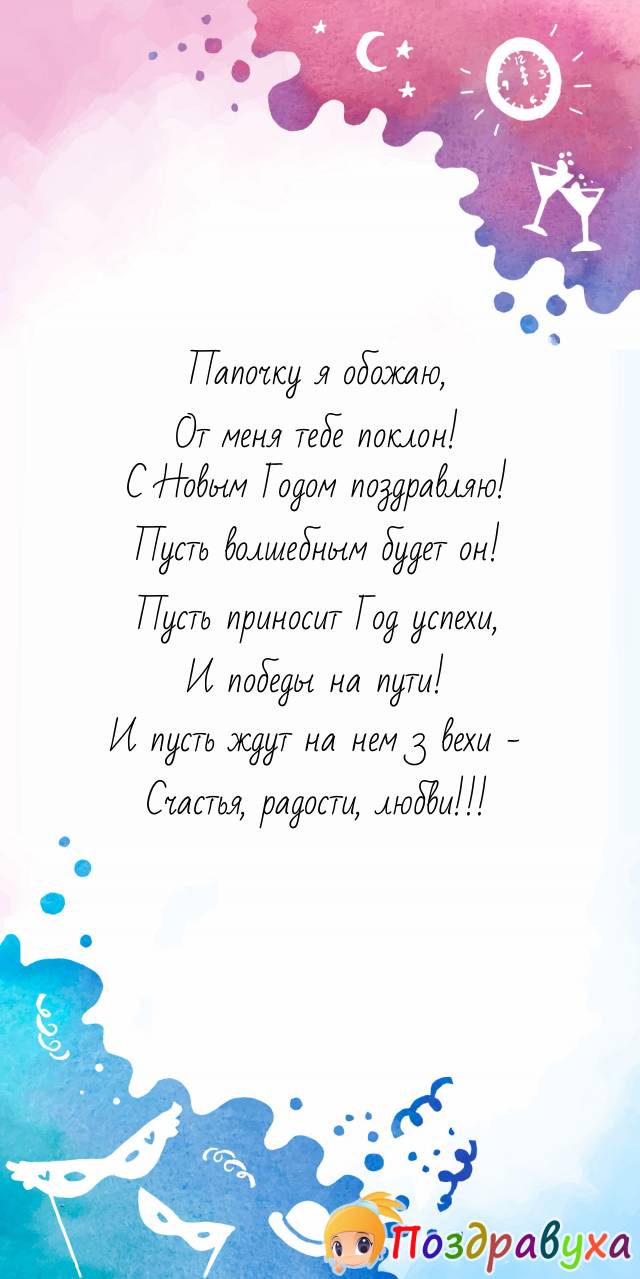 12
3
9
6
Папочку я обожаю,
От меня тебе поклон!
С Новым Годом поздравляю!
Пусть волшебным будет он!
Пусть приносит Год успехи,
И победы на пути!
И пусть ждут на нем 3 вехи -
Счастья, радости, любви!!!
Поздравуха